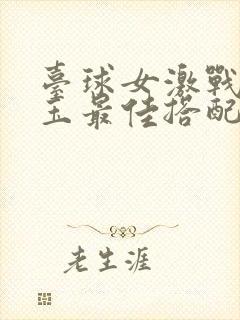 臺球女激戰
玉最佳搭配
老生涯